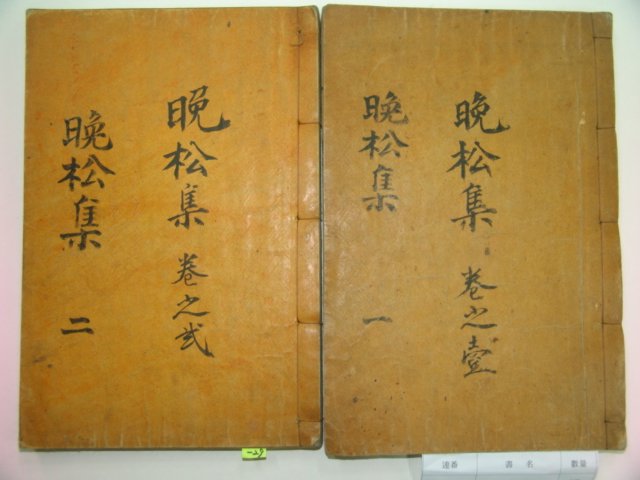 晩松集 卷之壹
晩松集 一
晩松集 卷之貳
晩松集 二
-29
連番 書名 數量